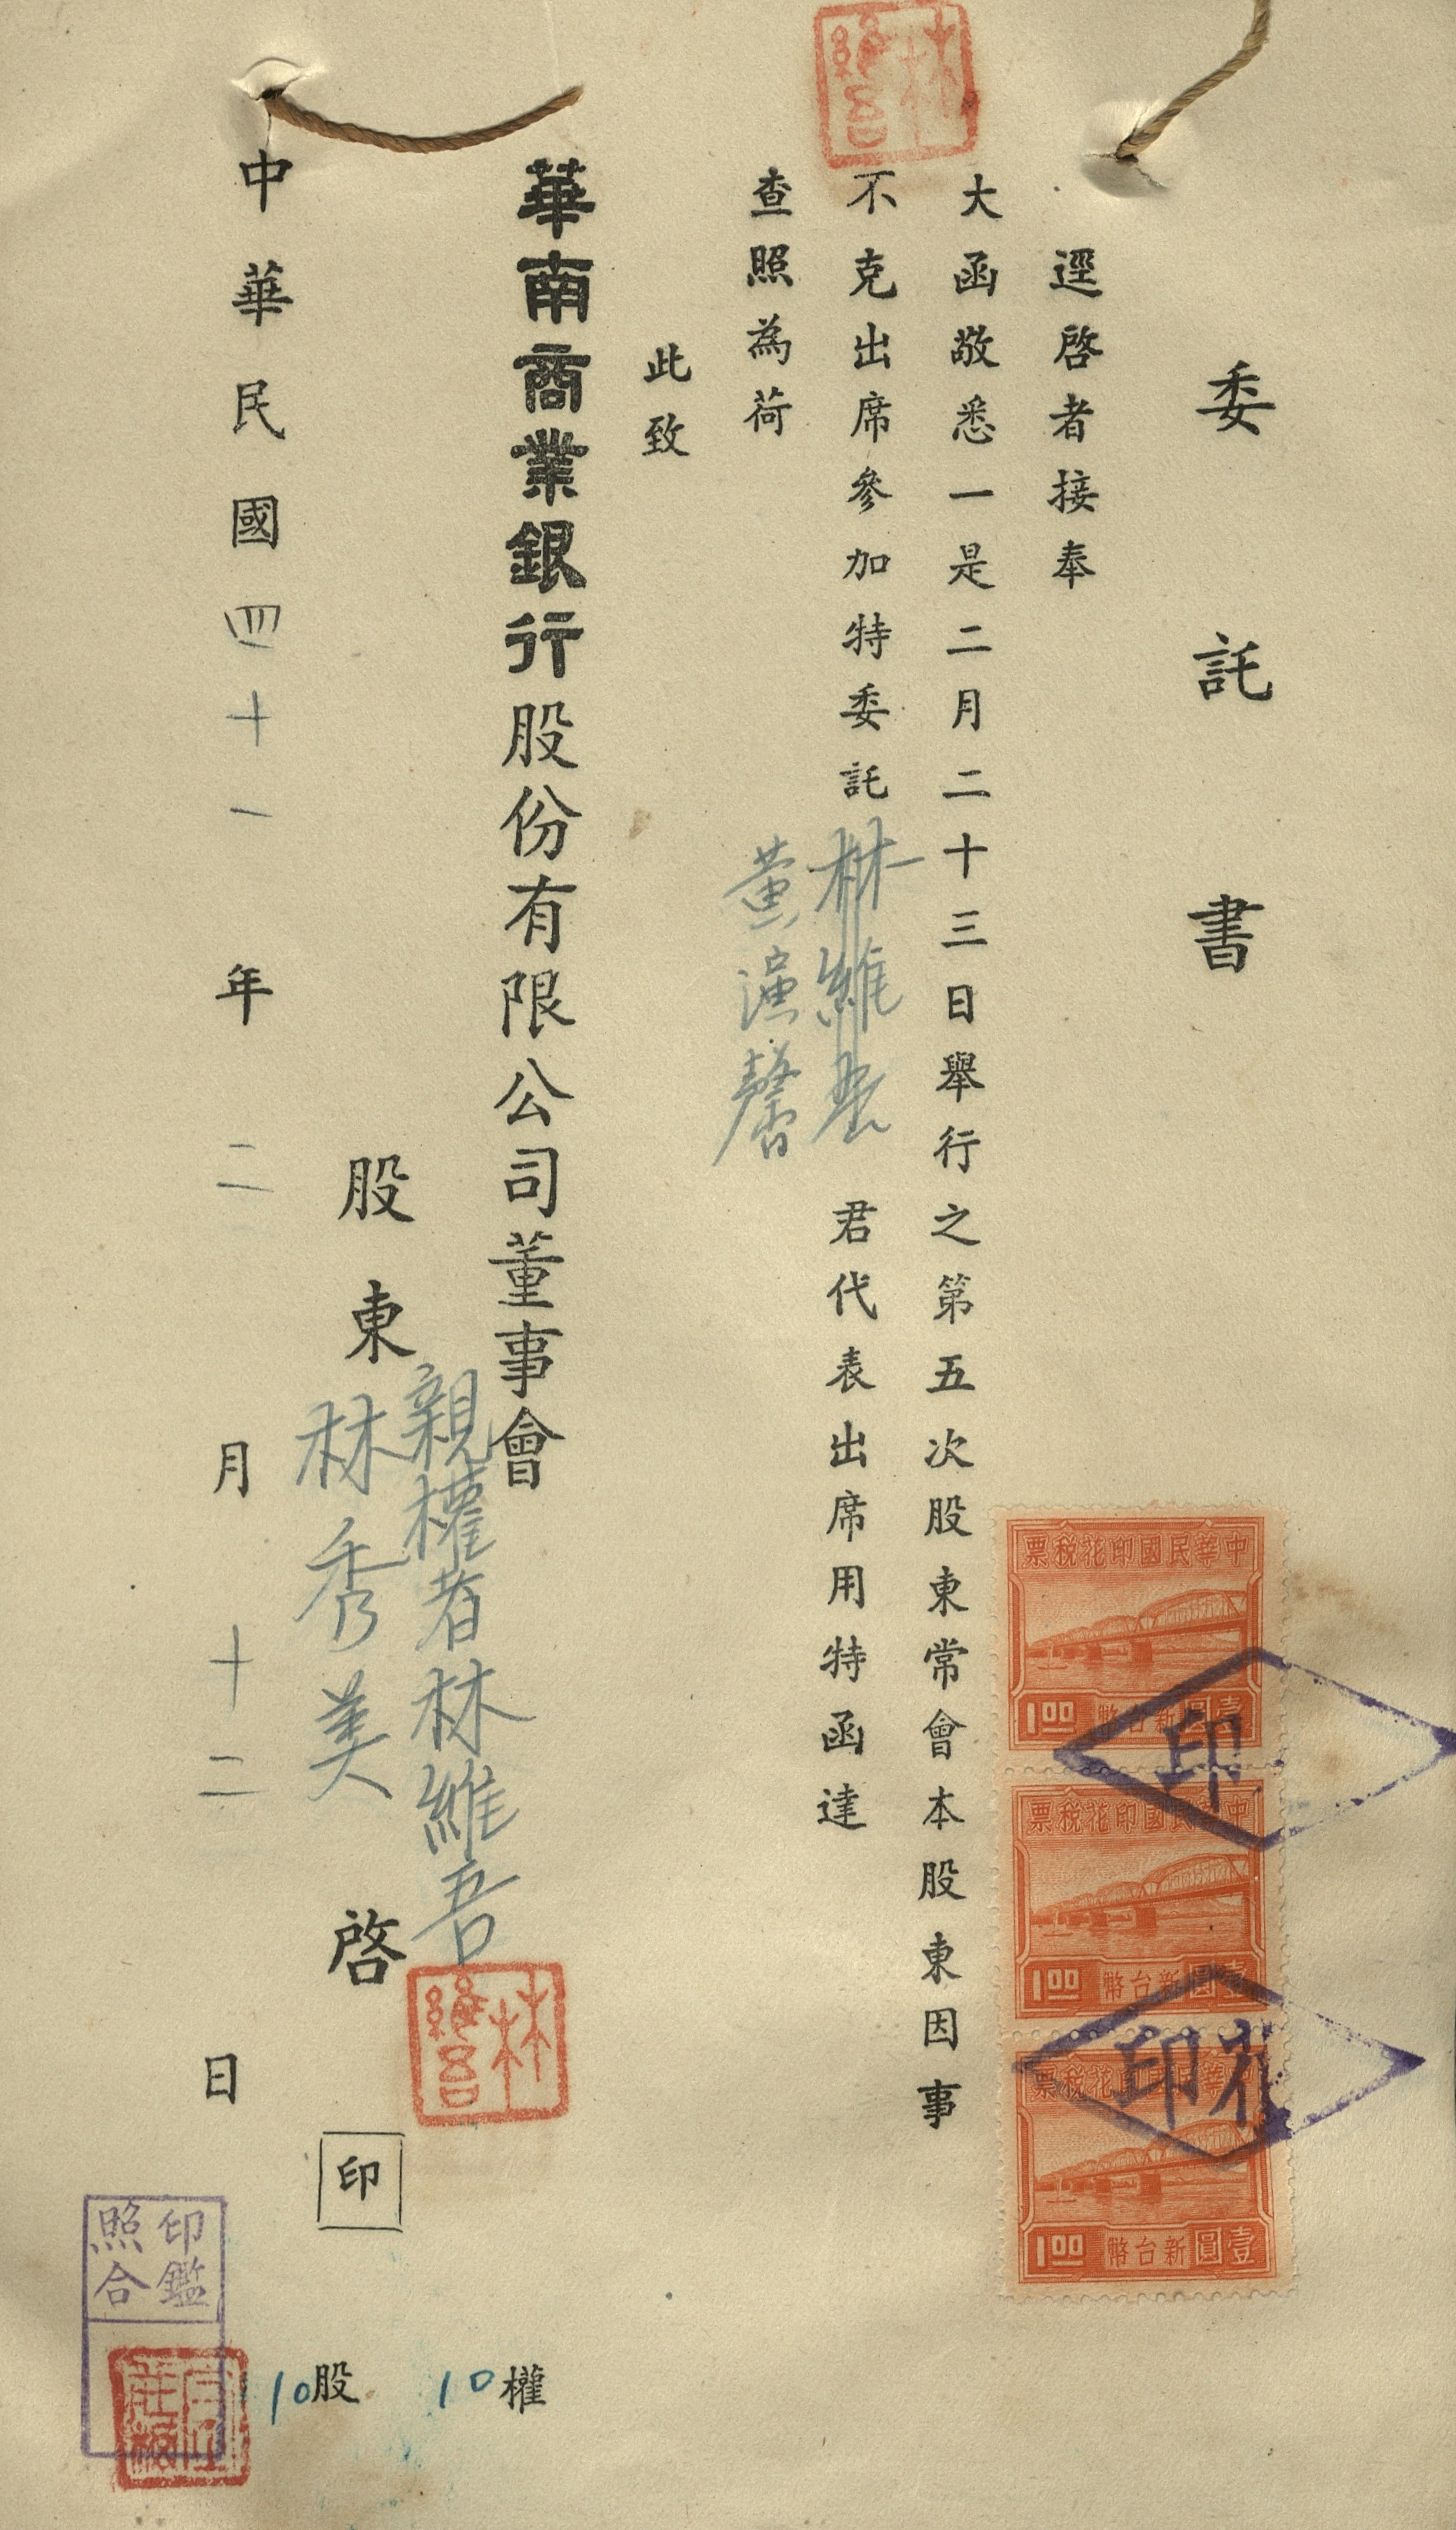 委託書
逕啓者接奉
大函敬悉一是二月二十三日舉行之第五次股東常會本股東因事
不克出席參加特委託林維吾君代表出席用特函達
黄演馨
查照為荷
此致
華南商業銀行股份有限公司董事會
親權者林維吾
股東林秀美啓
印
中華民國四十一年二月十二日
10權
10股
林維吾
林維吾
印鑑
照合
中華民國印花稅票
壹圓新台幣
1.00
中華民國印花稅票
壹圓新台幣
1.00
中華民國印花稅票
壹圓新台幣
1.00
印
印花